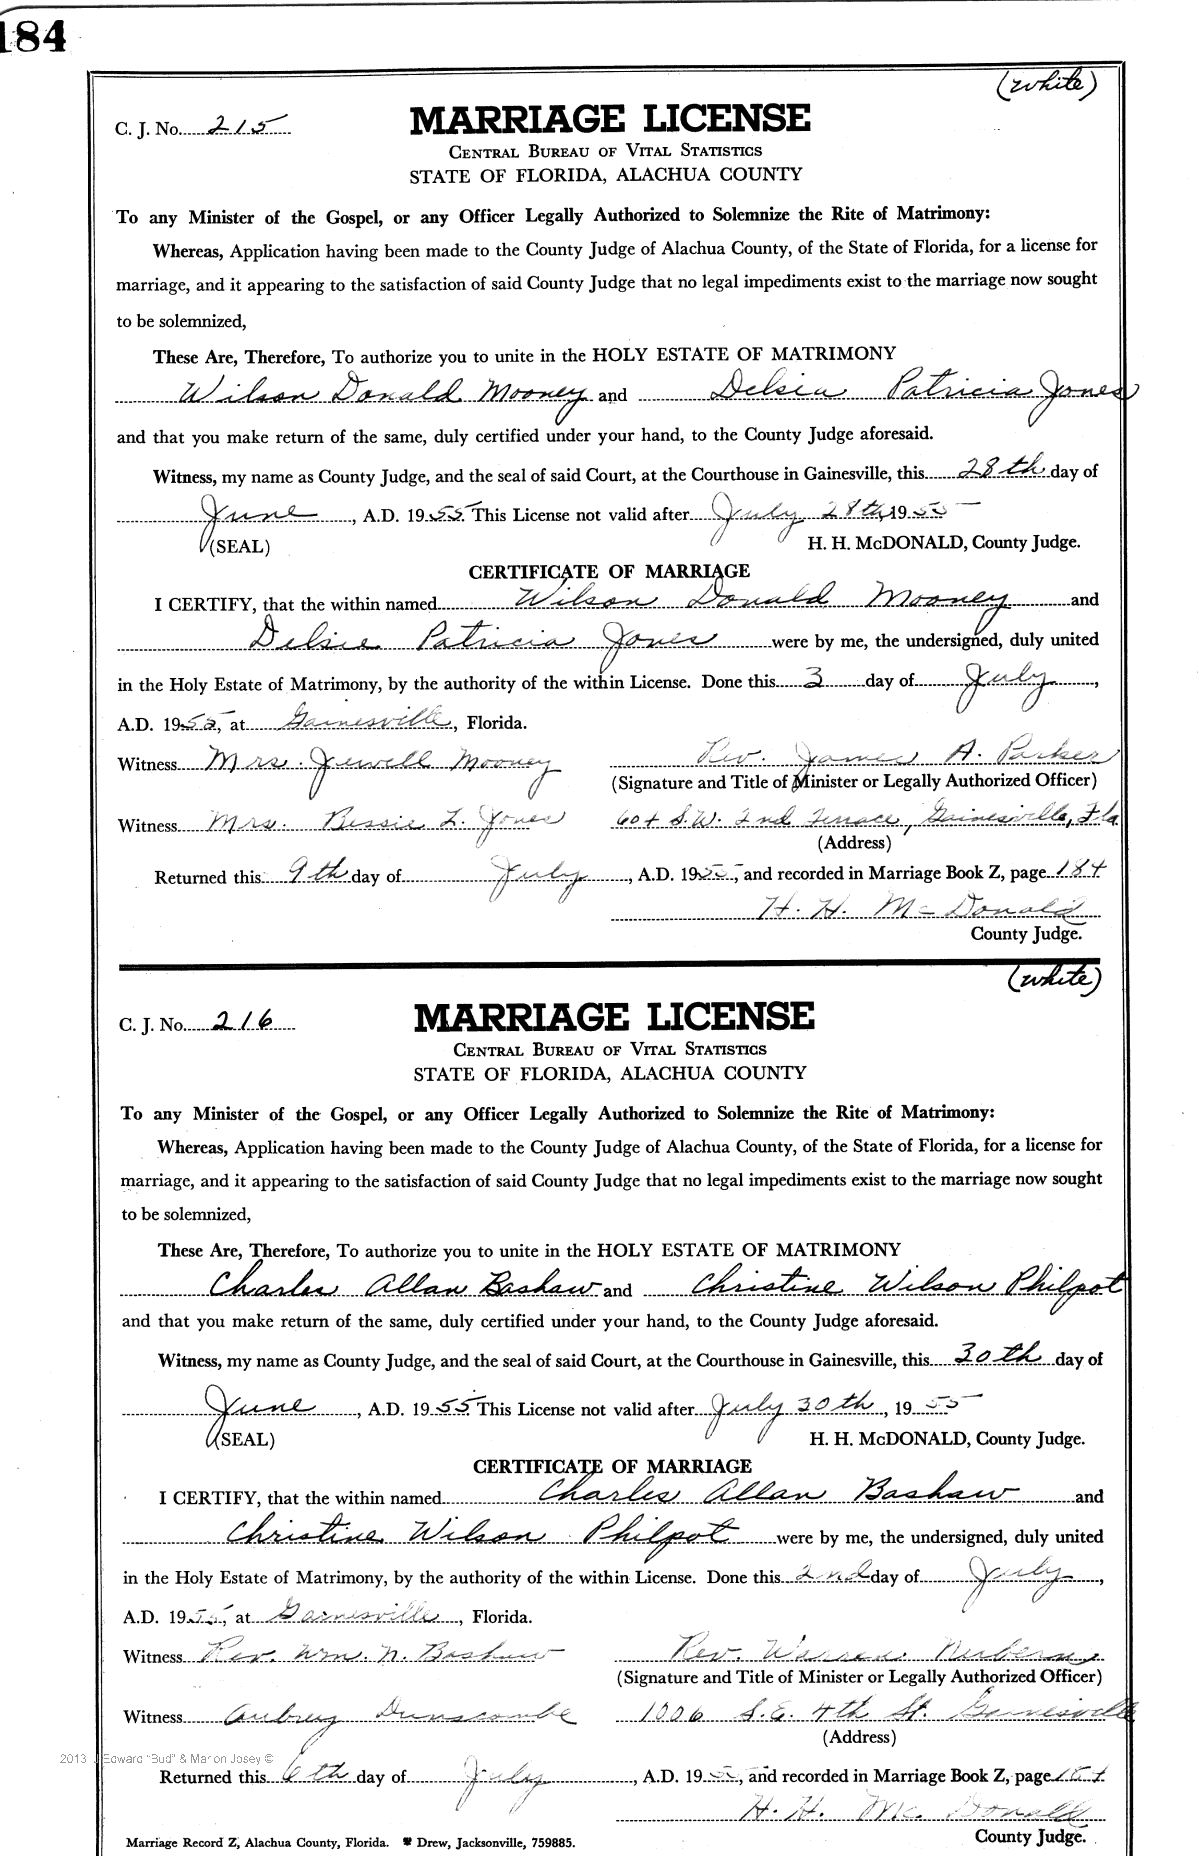 184
(white)
C. J. No. 215
MARRIAGE LICENSE
CENTRAL BUREAU OF VITAL STATISTICS
STATE OF FLORIDA, ALACHUA COUNTY
To any Minister of the Gospel, or any Officer Legally Authorized to Solemnize the Rite of Matrimony:
Whereas, Application having been made to the County Judge of Alachua County, of the State of Florida, for a license for
marriage, and it appearing to the satisfaction of said County Judge that no legal impediments exist to the marriage now sought
to be solemnized,
These Are, Therefore, To authorize you to unite in the HOLY ESTATE OF MATRIMONY
Wilson Donald Mooney and Delsia Patricia Jones
and that you make return of the same, duly certified under your hand, to the County Judge aforesaid.
Witness, my name as County Judge, and the seal of said Court, at the Courthouse in Gainesville, this 28th day of
June, A.D. 1955 This License not valid after July 28th, 1955
(SEAL) H. H. McDONALD, County Judge.
CERTIFICATE OF MARRIAGE
I CERTIFY, that the within named Wilson Donald Mooney and
Delsie Patricia Jones were by me, the undersigned, duly united
in the Holy Estate of Matrimony, by the authority of the within License. Done this 3 day of July,
A.D. 1955, at Gainesville, Florida.
Witness Mrs. Jewell Mooney Rev. James A. Parker
(Signature and Title of Minister or Legally Authorized Officer)
Witness Mrs. Bessie L. Jones 604 S.W. 2nd Terrace, Gainesville, Fla.
(Address)
Returned this 9th day of July, A.D. 1955, and recorded in Marriage Book Z, page 184
H. H. McDonald
County Judge.
(white)
C. J. No. 216
MARRIAGE LICENSE
CENTRAL BUREAU OF VITAL STATISTICS
STATE OF FLORIDA, ALACHUA COUNTY
To any Minister of the Gospel, or any Officer Legally Authorized to Solemnize the Rite of Matrimony:
Whereas, Application having been made to the County Judge of Alachua County, of the State of Florida, for a license for
marriage, and it appearing to the satisfaction of said County Judge that no legal impediments exist to the marriage now sought
to be solemnized,
These Are, Therefore, To authorize you to unite in the HOLY ESTATE OF MATRIMONY
Charles Allan Bashaw and Christine Wilson Philpot
and that you make return of the same, duly certified under your hand, to the County Judge aforesaid.
Witness, my name as County Judge, and the seal of said Court, at the Courthouse in Gainesville, this 30th day of
June, A.D. 1955 This License not valid after July 30th, 1955
(SEAL) H. H. McDONALD, County Judge.
CERTIFICATE OF MARRIAGE
I CERTIFY, that the within named Charles Allan Bashaw and
Christine Wilson Philpot were by me, the undersigned, duly united
in the Holy Estate of Matrimony, by the authority of the within License. Done this 2nd day of July,
A.D. 1955, at Gainesville, Florida.
Witness Rev. Wm. N. Bashaw Rev. Warren
(Signature and Title of Minister or Legally Authorized Officer)
Witness Aubrey Dunscombe 1006 S.E. 4th St. Gainesville
(Address)
2013 J Edward "Bud" & Marion Josey ©
Returned this 6th day of July, A.D. 1955, and recorded in Marriage Book Z, page 184
H. H. McDonald
County Judge.
Marriage Record Z, Alachua County, Florida. Drew, Jacksonville, 759885.